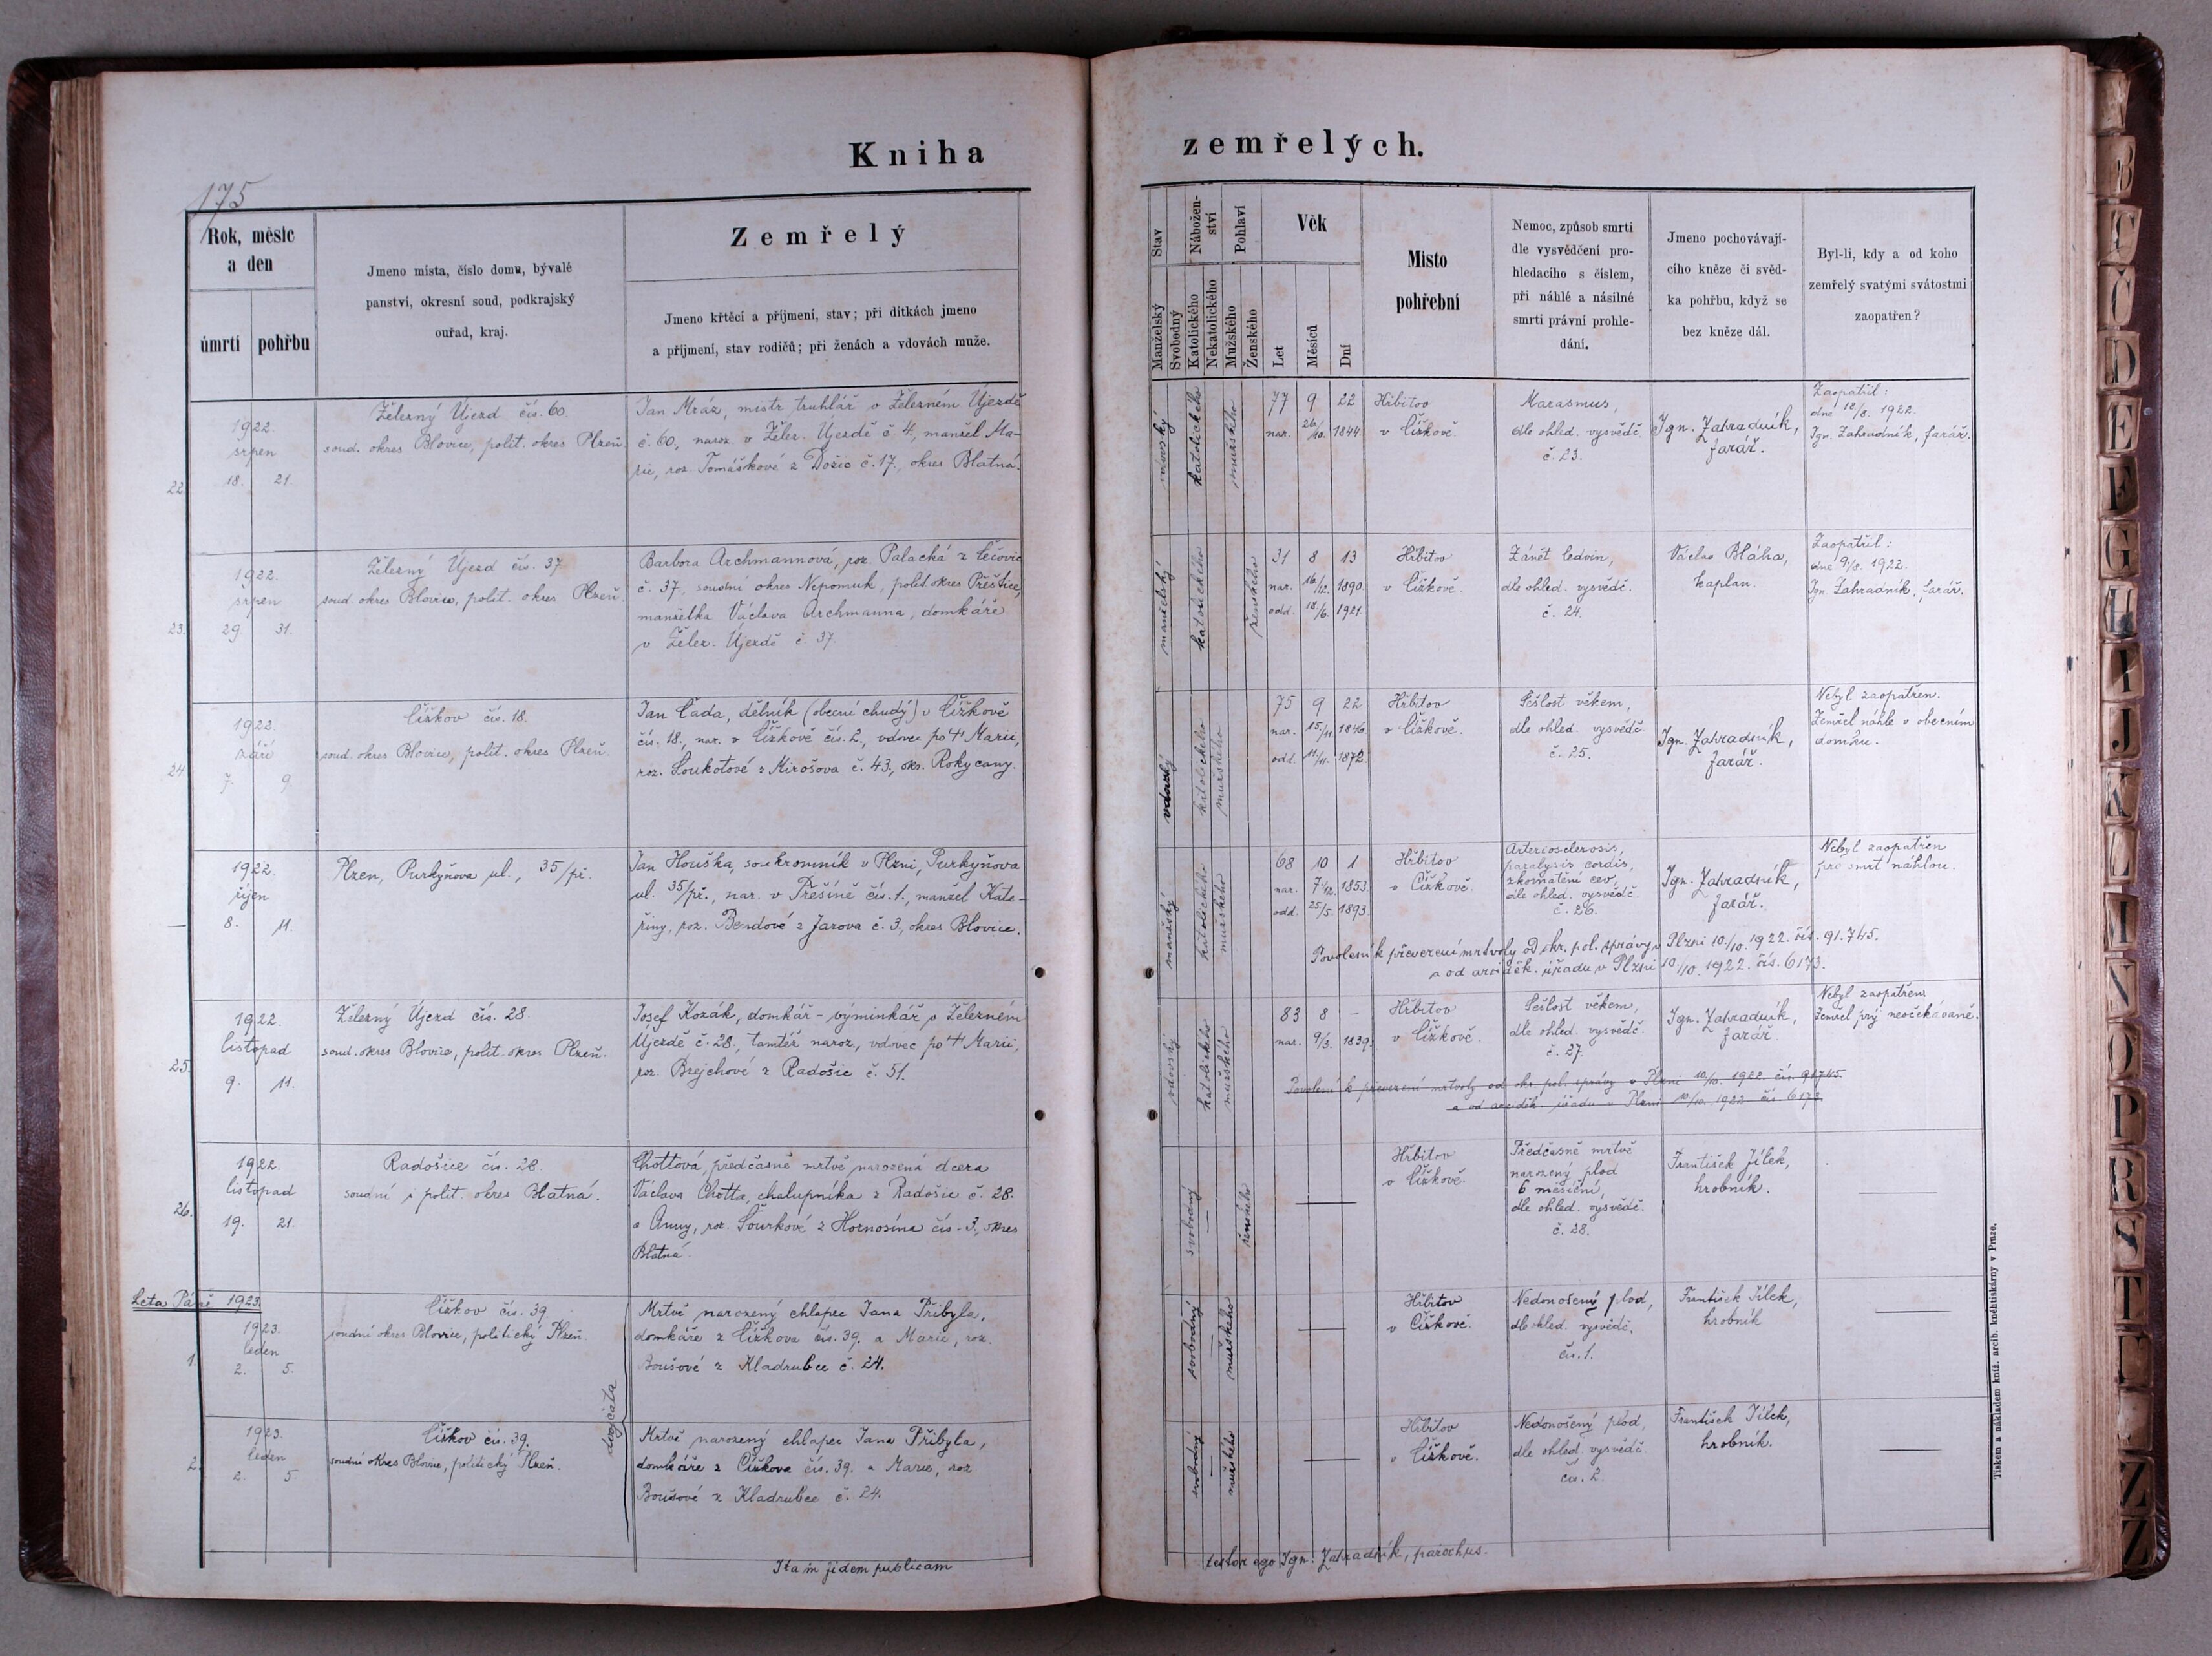 Kniha
zemřelých.
175
Rok, měsíc
a den
úmrtí
pohřbu
Jmeno mista, číslo domu, bývalé
panství, okresní soud, podkrajský
ouřad, kraj.
Zemřelý
Jmeno křtěcí a příjmení, stav; při dítkách jmeno
a příjmení, stav rodičů; při ženách a vdovách muže.
Stav
Manželský
Svobodný
Nábožen-
ství
Katolického
Nekatolického
Pohlaví
Mužského
Ženského
Věk
Let
Měsíců
Dní
Místo
pohřební
Nemoc, způsob smrti
dle vysvědčení pro-
hledacího s číslem,
při náhlé a násilné
smrti právní prohle-
dání.
Jmeno pochovávají-
cího kněze či svěd-
ka pohřbu, když se
bez kněze dál.
Byl-li, kdy a od koho
zemřelý svatými svátostmi
zaopatřen?
22.
1922.
srpen
18. 21.
Železný Újezd čís. 60.
soud. okres Blovice, polit. okres Plzeň
Jan Mráz, mistr truhlář v Železném Újezdě
č. 60., naroz. v Želez. Újezdě č. 4., manžel Ma-
rie, roz. Tomáškové z Dožic č. 17., okres Blatná.
vdovský
katolického
mužského
77 9 22
nar. 26/10. 1844.
Hřbitov
v Čížkově.
Marasmus,
dle ohled. vysvědč.
č. 23.
Ign. Zahradník,
farář.
Zaopatřil:
dne 12/8. 1922.
Ign. Zahradník, farář.
23.
1922.
srpen
29. 31.
Železný Újezd čís. 37
soud. okres Blovice, polit. okres Plzeň.
Barbora Archmannová, roz. Palacká z Čečovic
č. 37., soudní okres Nepomuk, polit. okres Přeštice,
manželka Václava Archmanna, domkáře
v Želez. Újezdě č. 37.
manželský
katolického
ženského
31 8 13
nar. 16/12. 1890.
odd. 18./6. 1921.
Hřbitov
v Čížkově.
Zánět ledvin,
dle ohled. vysvědč.
č. 24.
Václav Bláha,
kaplan.
Zaopatřil:
dne 9/8. 1922.
Ign. Zahradník, farář.
24.
1922.
září
7. 9.
Čížkov čís. 18.
soud. okres Blovice, polit. okres Plzeň.
Jan Čada, dělník (obecní chudý) v Čížkově
čís. 18., nar. v Čížkově čís. 2., vdovec po † Marii,
roz. Loukotové z Mirošova č. 43., okr. Rokycany.
vdovský
katolického
mužského
75 9 22
nar. 15./11. 1846.
odd. 11/11. 1872.
Hřbitov
v Čížkově.
Sešlost věkem,
dle ohled. vysvědč.
č. 25.
Ign. Zahradník,
farář.
Nebyl zaopatřen.
Zemřel náhle v obecním
domku.
—
1922.
říjen
8. 11.
Plzen, Purkyňova ul., 35/př.
Jan Houška, soukromník v Plzni, Purkyňova
ul. 35/př., nar. v Přešíně čís. 1., manžel Kate-
řiny, roz. Bendové z Jarova č. 3., okres Blovice.
manželský
katolického
mužského
68 10 1
nar. 7/12. 1853.
odd. 25/5. 1893.
Hřbitov
v Čížkově.
Arteriosclerosis,
paralysis cordis,
zkornatění cev,
dle ohled. vysvědč.
č. 26.
Ign. Zahradník,
farář.
Nebyl zaopatřen
pro smrt náhlou.
Povolení k převezení mrtvoly od okr. pol. správy v Plzni 10./10. 1922. čís. 91.745.
a od arciděk. úřadu v Plzni 10./10. 1922. čís. 6173.
25.
1922.
listopad
9. 11.
Železný Újezd čís. 28.
soud. okres Blovice, polit. okres Plzeň.
Josef Kozák, domkář - výminkář v Železném
Újezdě č. 28., tamtéž naroz., vdovec po † Marii,
roz. Brejchové z Radošic č. 51.
vdovský
katolického
mužského
83 8 -
nar. 9/3. 1839.
Hřbitov
v Čížkově.
Sešlost věkem,
dle ohled. vysvědč.
č. 27.
Ign. Zahradník,
farář.
Nebyl zaopatřen.
Zemřel prý neočekávaně.
Povolení k převezení mrtvoly od okr. pol. správy v Plzni 10/10. 1922. čís. 91745.
a od arciděk. úřadu v Plzni 10/10. 1922 čís. 6173.
26.
1922.
listopad
19. 21.
Radošice čís. 28.
soudní i polit. okres Blatná.
Chottová, předčasně mrtvě narozená dcera
Václava Chotta, chalupníka z Radošic č. 28.
a Anny, roz. Šourkové z Hornosína čís. 3., okres
Blatná.
svobodný
—
ženského
Hřbitov
v Čížkově.
Předčasně mrtvě
narozený plod
6 měsíční,
dle ohled. vysvědč.
č. 28.
František Jílek,
hrobník.
Léta Páně 1923.
1.
1923.
leden
2. 5.
Čížkov čís. 39.
soudní okres Blovice, politický Plzeň.
Mrtvě narozený chlapec Jana Přibyla,
domkáře z Čížkova čís. 39. a Marie, roz.
Boušové z Kladrubce č. 24.
svobodný
—
mužského
Hřbitov
v Čížkově.
Nedonošený plod,
dle ohled. vysvědč.
čís. 1.
František Jílek,
hrobník
dvojčata
2.
1923.
leden
2. 5.
Čížkov čís. 39.
soudní okres Blovice, politický Plzeň.
Mrtvě narozený chlapec Jana Přibyla,
domkáře z Čížkova čís. 39. a Marie, roz
Boušové z Kladrubce č. 24.
svobodný
—
mužského
Hřbitov
v Čížkově.
Nedonošený plod,
dle ohled. vysvědč.
čís. 2.
František Jílek,
hrobník.
Ita in fidem publicam
testor ego Ign. Zahradník, parochus.
Tiskem a nákladem kníž. arcib. knihtiskárny v Praze.
B
T
Č
D
E
F
G
H
I
J
K
L
M
N
O
P
R
S
T
U
Z
Ž